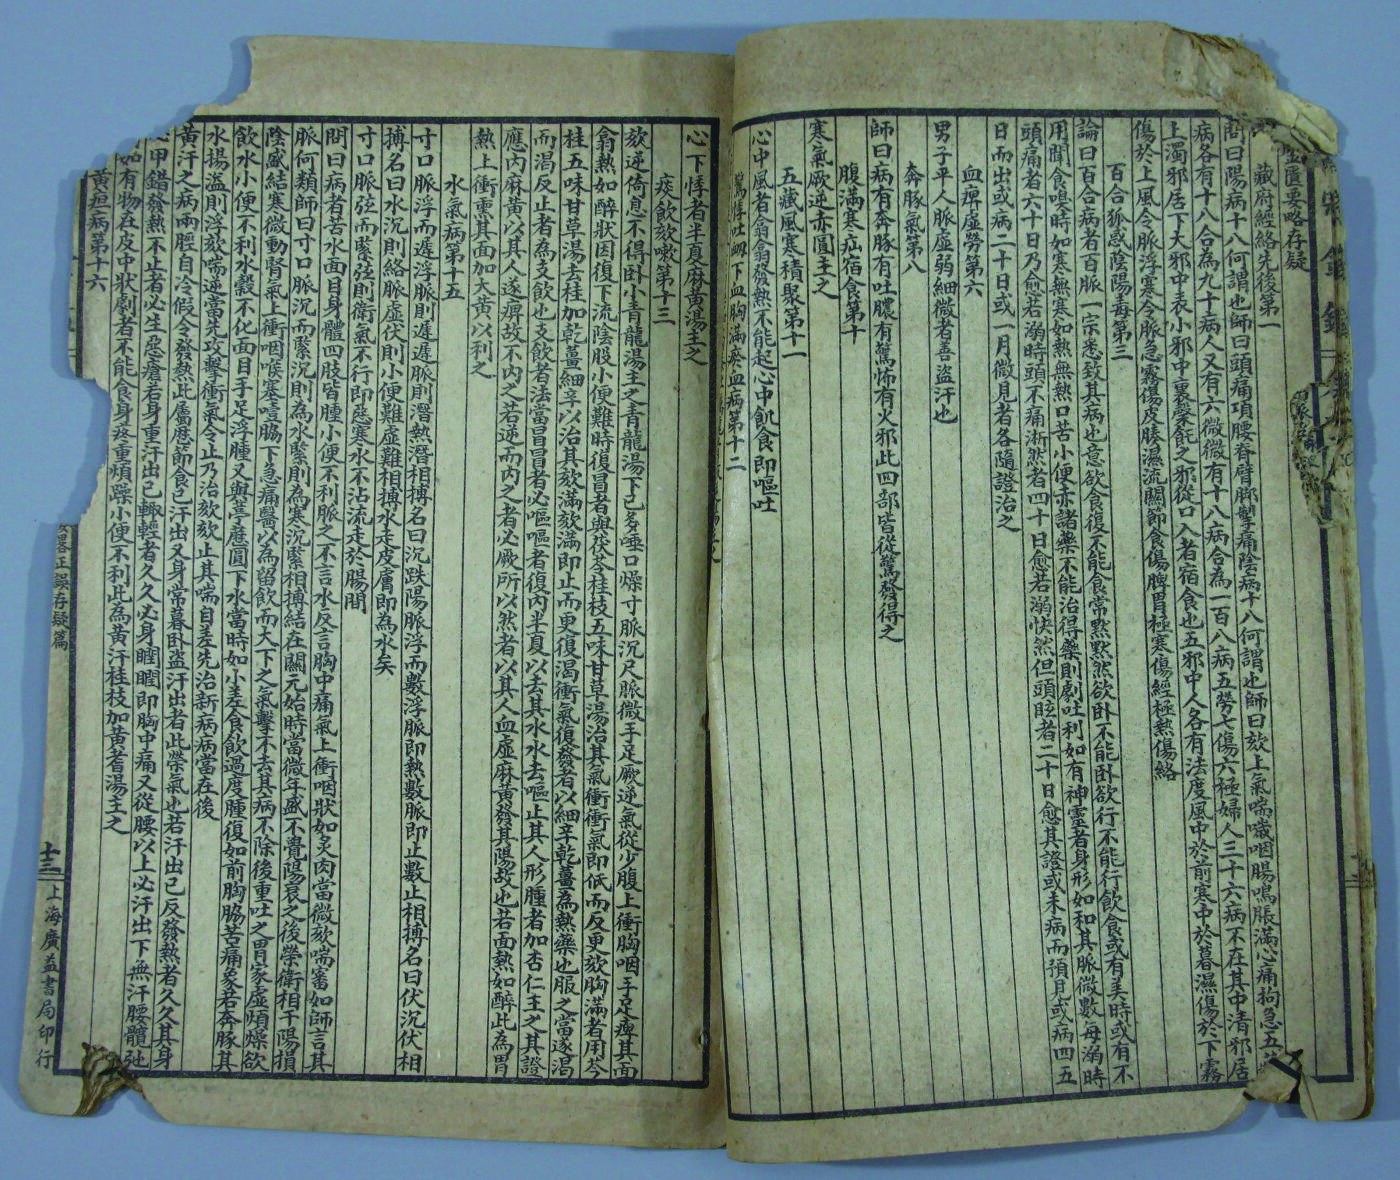 金匱要略存疑
藏府經絡先後第一
問曰陽病十八何謂也師曰頭痛項腰脊臂腳掣痛陰病十八何謂也師曰欬上氣喘噦咽腸鳴脹滿心痛拘急五
病各有十八合為九十病人又有六微微有十八病合為一百八病五勞七傷六極婦人三十六病不在其中清邪居
上濁邪居下大邪中表小邪中裏槃飥之邪從口入者宿食也五邪中人各有法度風中於前寒中於暮濕傷於下霧
傷於上風令脈浮寒令脈急霧傷皮腠濕流關節食傷脾胃極寒傷經極熱傷絡
百合狐惑陰陽毒第三
論曰百合病者百脈一宗悉致其病也意欲食復不能食常默默然欲卧不能卧欲行不能行飲食或有美時或有不
用聞食嗅時如寒無寒如熱無熱口苦小便赤諸藥不能治得藥則劇吐利如有神靈者身形如和其脈微數每溺時
頭痛者六十日乃愈若溺時頭不痛淅然者四十日愈若溺快然但頭眩者二十日愈其證或未病而預見或病四五
日而出或病二十日或一月微見者各隨證治之
血痺虛勞第六
男子平人脈虛弱細微者善盜汗也
奔豚氣第八
師曰病有奔豚有吐膿有驚怖有火邪此四部皆從驚發得之
腹滿寒疝宿食第十
寒氣厥逆赤圓主之
五藏風寒積聚第十一
心中風者翕翕發熱不能起心中飢食即嘔吐
驚悸吐衂下血胸滿瘀血病第十二
心下悸者半夏麻黃湯主之
痰飲欬嗽第十三
欬逆倚息不得卧小青龍湯主之青龍湯下已多唾口燥寸脈沉尺脈微手足厥逆氣從少腹上衝胸咽手足痺其面
翕熱如醉狀因復下流陰股小便難時復冒者與茯苓桂枝五味甘草湯治其氣衝衝氣即低而反更欬胸滿者用苓
桂五味甘草湯去桂加乾薑細辛以治其欬滿欬滿即止而更復渴衝氣復發者以細辛乾薑為熱藥也服之當遂渴
而渴反止者為支飲也支飲者法當冒冒者必嘔嘔者復內半夏以去其水水去嘔止其人形腫者加杏仁主之其證
應內麻黃以其人遂痺故不內之若逆而內之者必厥所以然者以其人血虛麻黃發其陽故也若面熱如醉此為胃
熱上衝熏其面加大黃以利之
水氣病第十五
寸口脈浮而遲浮脈則熱遲脈則潛熱潛相搏名曰沉趺陽脈浮而數浮脈即熱數脈即止數止相搏名曰伏沉伏相
搏名曰水沉則絡脈虛伏則小便難虛難相搏水走皮膚即為水矣
寸口脈弦而緊弦則衛氣不行即惡寒水不沾流走於腸間
問曰病者苦水面目身體四肢皆腫小便不利脈之不言水反言胸中痛氣上衝咽狀如炙肉當微欬喘審如師言其
脈何類師曰寸口脈沉而緊沉則為水緊則為寒沉緊相搏結在關元始時當微年盛不覺陽衰之後榮衛相干陽損
陰盛結寒微動腎氣上衝咽喉塞噎脇下急痛醫以為留飲而大下之氣擊不去其病不除後重吐之胃家虛煩燥欲
飲水小便不利水穀不化面目手足浮腫又與葶藶圓下水當時如小差食飲過度腫復如前胸脇苦痛象若奔豚其
水揚溢則浮欬喘逆當先攻擊衝氣令止乃治欬欬止其喘自差先治新病病當在後
黃汗之病兩脛自冷假令發熱此屬歷節食已汗出又身常暮卧盜汗出者此榮氣也若汗出已反發熱者久久其身
必甲錯發熱不止者必生惡瘡若身重汗出已輒輕者久久必身瞤瞤即胸中痛又從腰以上必汗出下無汗腰髖弛
如有物在皮中狀劇者不能食身疼重煩躁小便不利此為黃汗桂枝加黃耆湯主之
黃疸病第十六
正誤存疑篇
十三
上海廣益書局印行